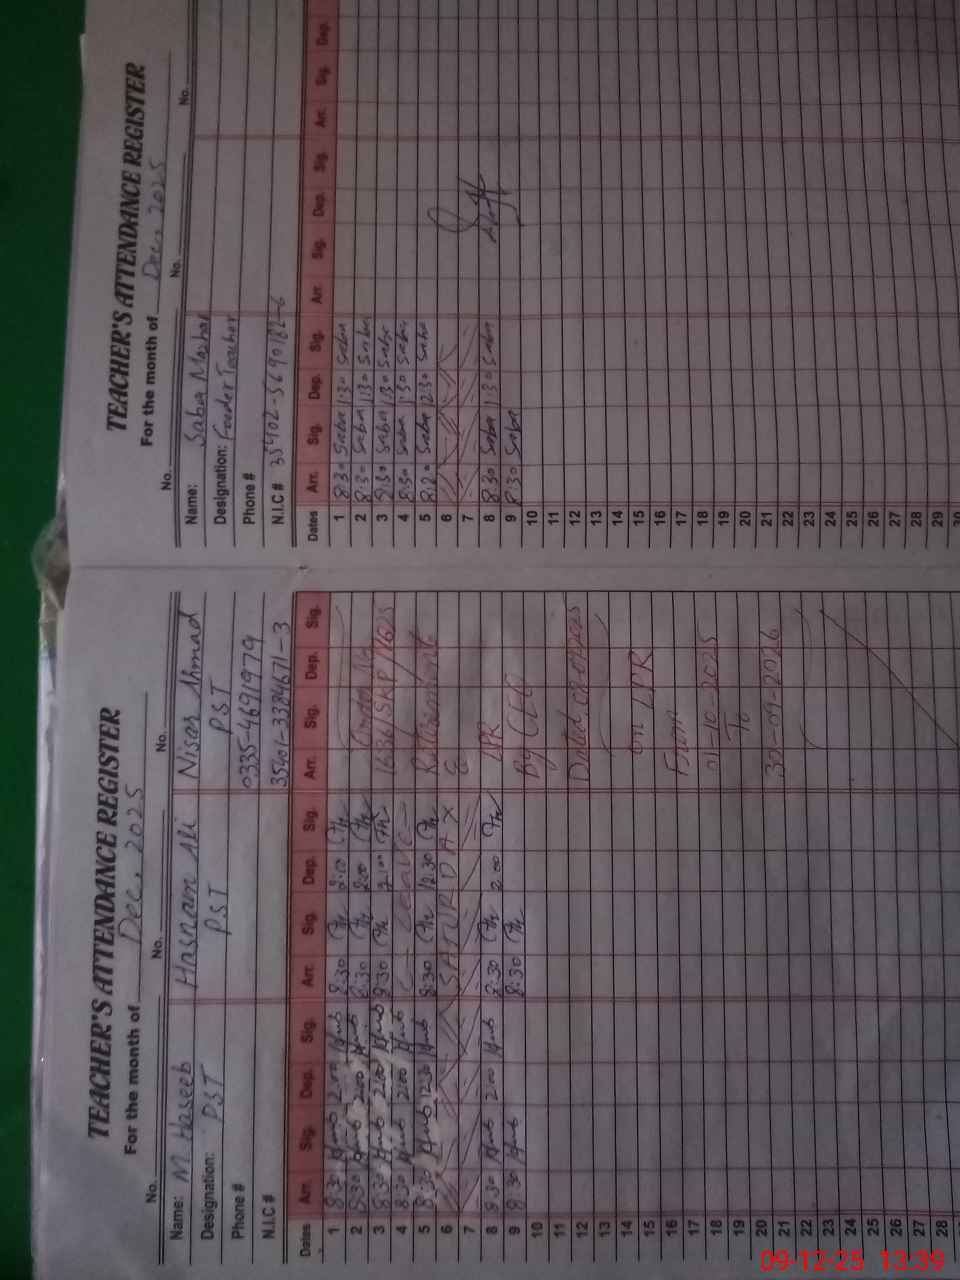 TEACHER'S ATTENDANCE REGISTER
For the month of Dec, 2025
No. No. No.
Name: M. Haseeb Hasnain Ali Nisar Ahmad
Designation: PST PST PST
Phone # 0335-4691979
N.I.C # 35401-3384671-3
Dates Arr. Sig. Dep. Sig. Arr. Sig. Dep. Sig. Arr. Sig. Dep. Sig.
1 8:30 2:00 8:30 2:00
2 8:30 2:00 8:30 2:00 Order No
3 8:30 2:00 8:30 2:00
4 8:30 2:00 Leave
5 8:30 12:30 8:30 12:30 Retirement
6 SATURDAY
7
8 8:30 2:00 8:30 2:00 LPR
9 8:30 8:30
10 By CEO
11
12 Dated
13
14
15 on LPR
16
17 From
18 01-10-2025
19 To
20
21 30-09-2026
22
23
24
25
26
27
28
TEACHER'S ATTENDANCE REGISTER
For the month of Dec, 2025
No. No. No.
Name: Saba Mazhar
Designation: Feeder Teacher
Phone #
N.I.C # 35402-5690182-6
Dates Arr. Sig. Dep. Sig. Arr. Sig. Dep. Sig. Arr. Sig. Dep.
1 8:30 Saba 1:30 Saba
2 8:30 Saba 1:30 Saba
3 8:30 Saba 1:30 Saba
4 8:30 Saba 1:30 Saba
5 8:20 Saba 12:30 Saba
6
7
8 8:30 Saba 1:30 Saba
9 8:30 Saba
10
11
12
13
14
15
16
17
18
19
20
21
22
23
24
25
26
27
28
29
30
09-12-25 13:39